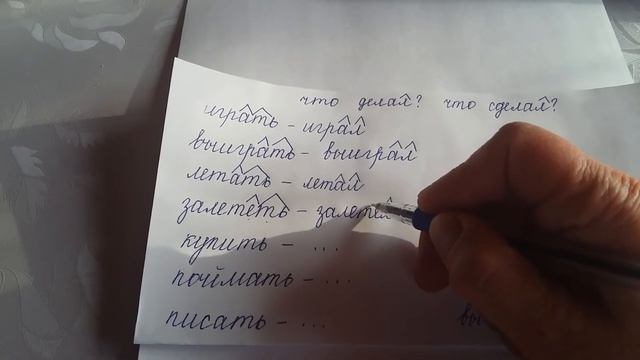 что делал? что сделал?
играть - играл
выиграть - выиграл
летать - летал
залететь - залетел
купить - ...
поймать - ...
писать - ...